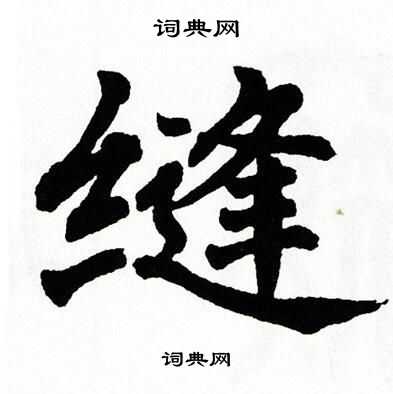 词典网
缝
词典网